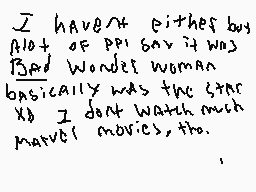 I havent either buy
Alot of ppl say it was
BAD wonder woman
basically was the star
XD I dont watch much
marvel movies, tho.